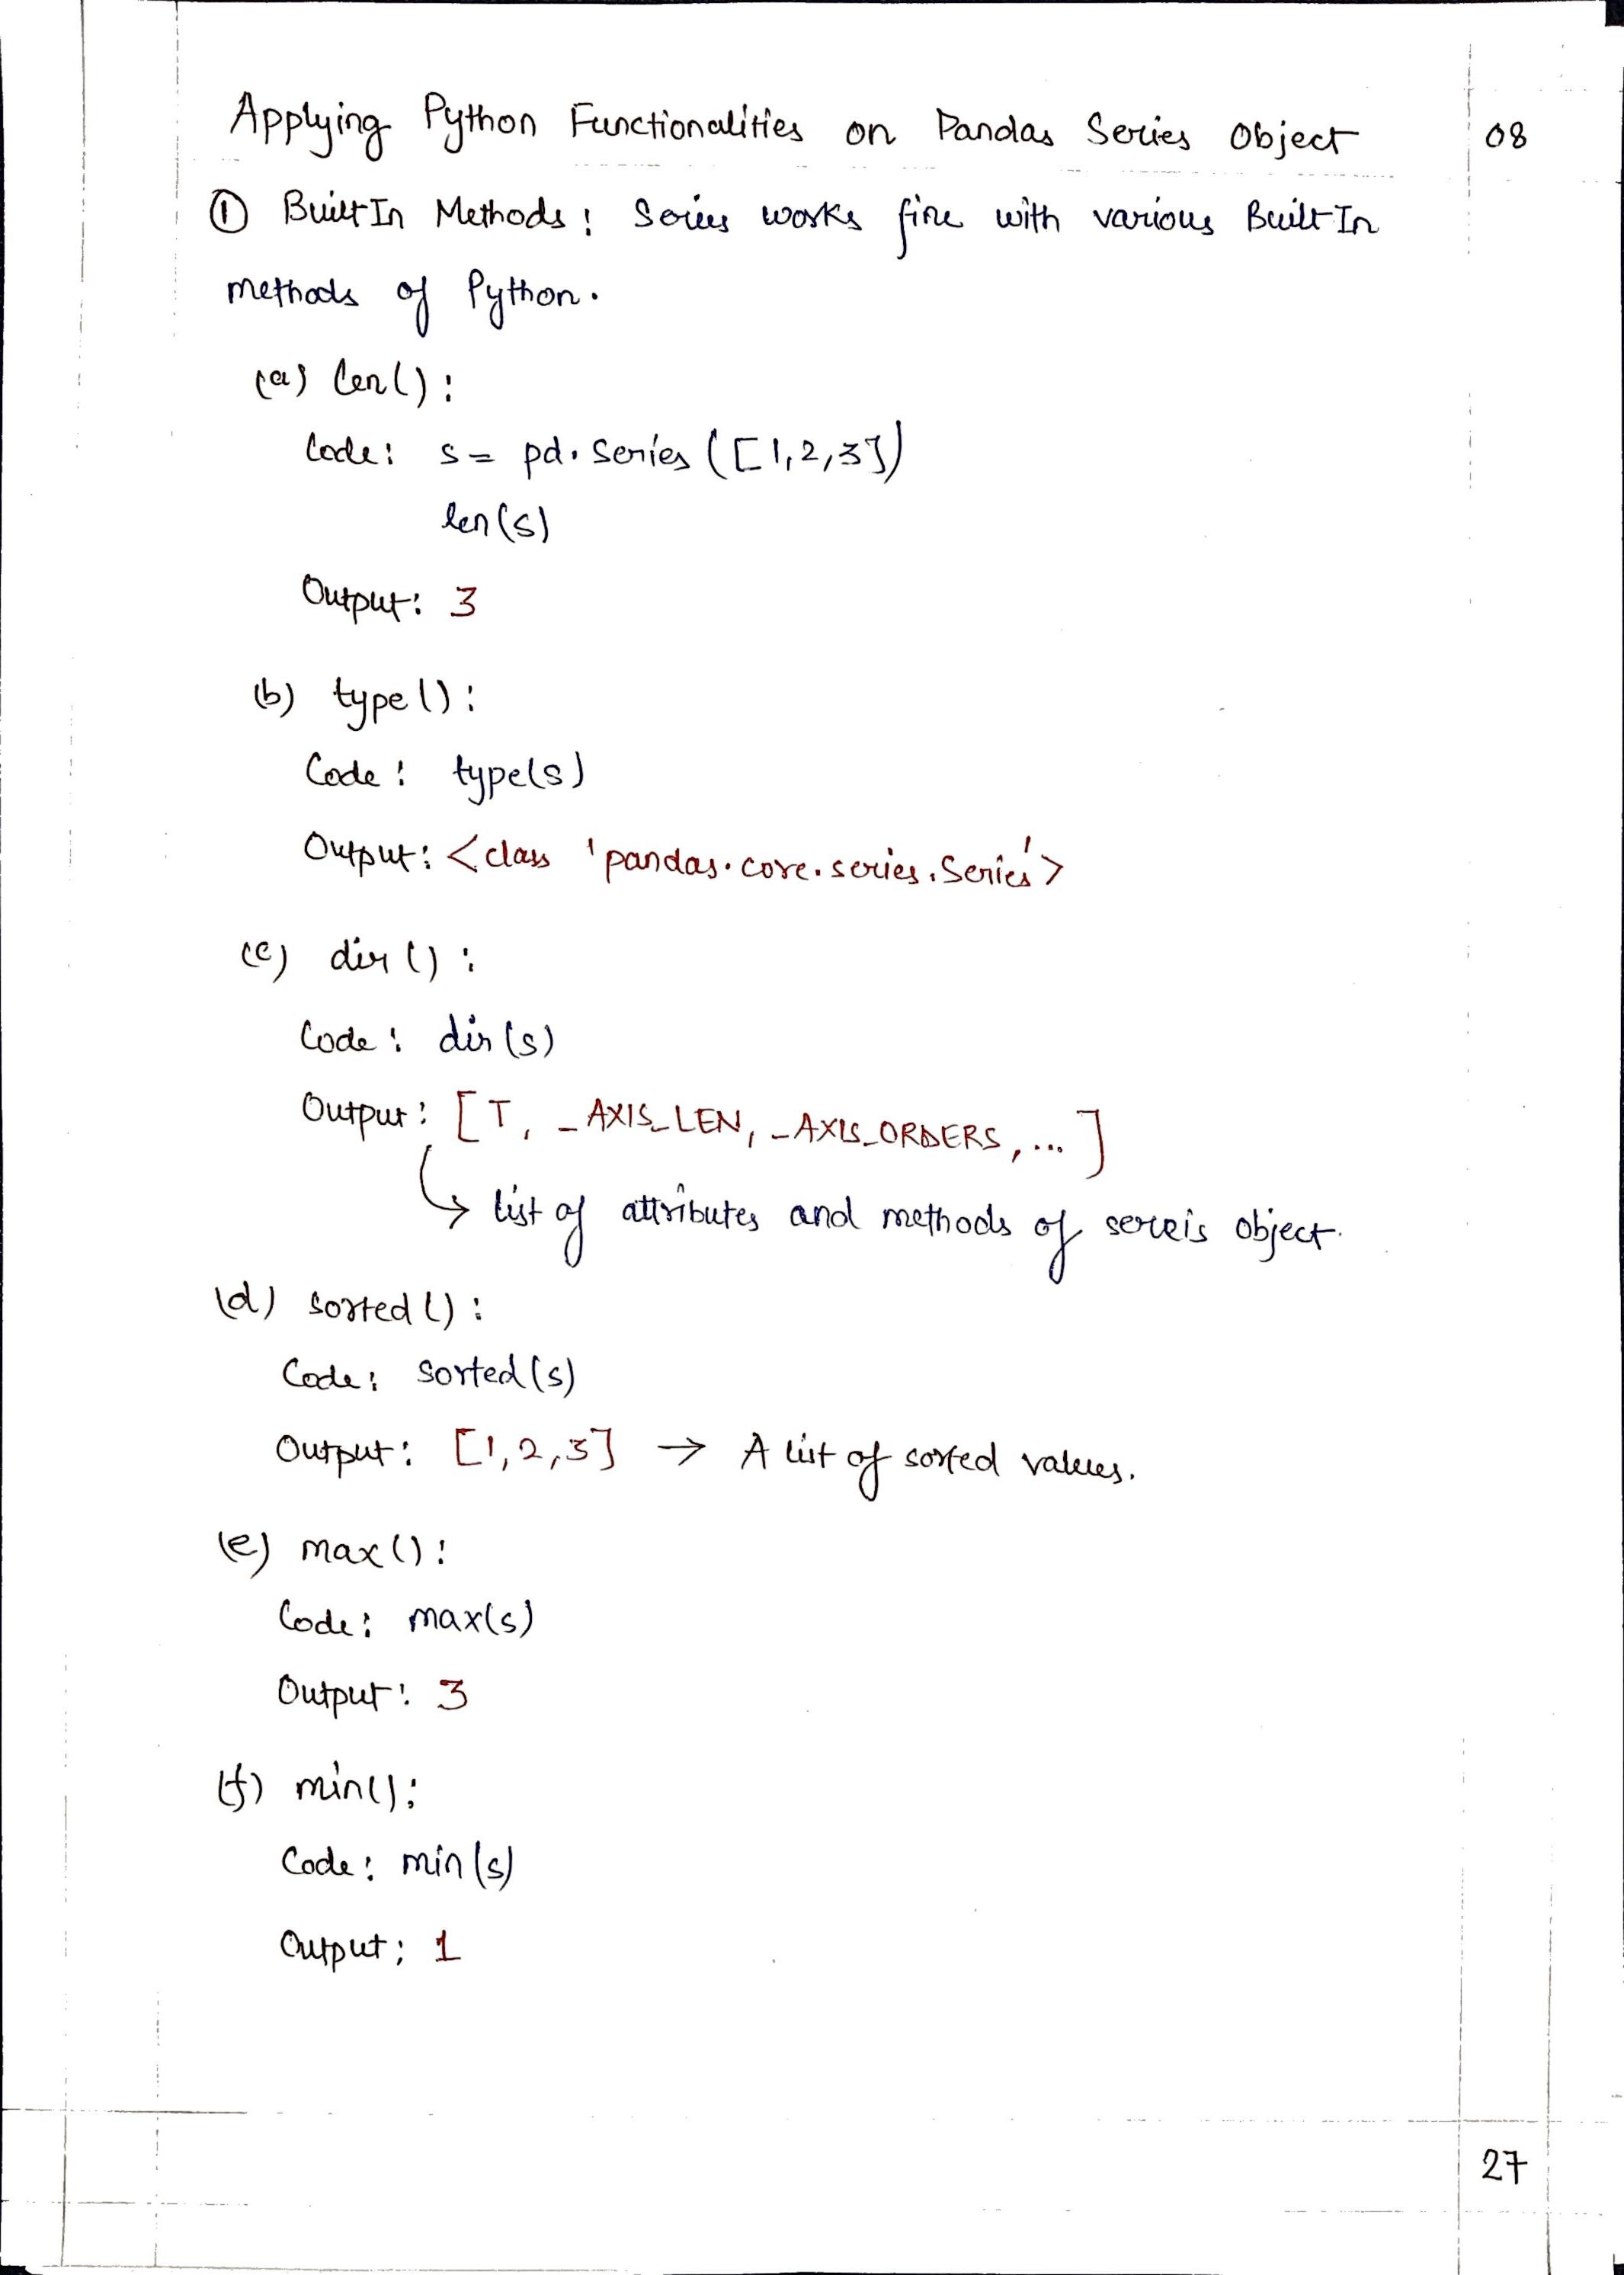 Applying Python Functionalities on Pandas Series Object 08
① Built In Methods: Series works fine with various Built-In
methods of Python.
(a) len():
Code: s = pd.Series([1,2,3])
len(s)
Output: 3
(b) type():
Code: type(s)
Output: <class 'pandas.core.series.Series'>
(c) dir():
Code: dir(s)
Output: [T, _AXIS_LEN, _AXIS_ORDERS, ...]
↳ list of attributes and methods of sereis object.
(d) sorted():
Code: sorted(s)
Output: [1,2,3] → A list of sorted values.
(e) max():
Code: max(s)
Output: 3
(f) min():
Code: min(s)
Output: 1
27